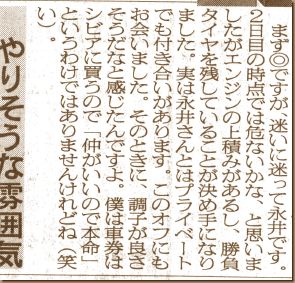 まず◎ですが、迷いに迷って永井です。
2日目の時点では危ないかな、と思いま
したがエンジンの上積みがあるし、勝負
タイヤを残していることが決め手になり
ました。実は永井さんとはプライベート
でも付き合いがあります。このオフにも
お会いました。そのときに、調子が良さ
そうだなと感じたんですよ。僕は車券は
シビアに買うので「仲がいいので本命」
というわけではありませんけれどね（笑
い）。
やりそうな雰囲気